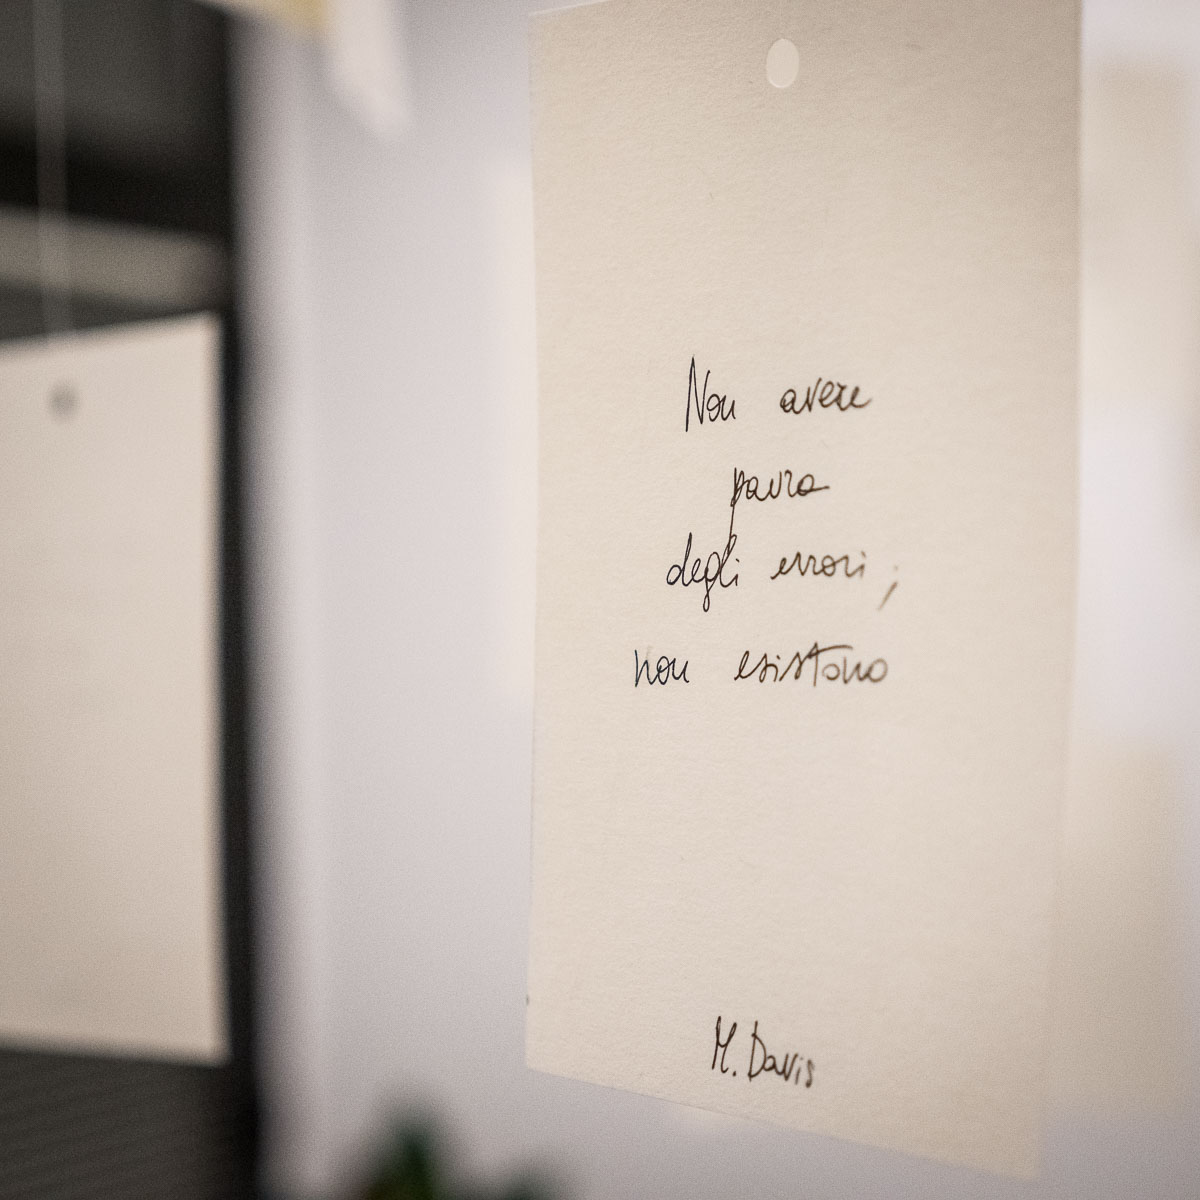 Non avere
paura
degli errori;
non esistono
M. Davis